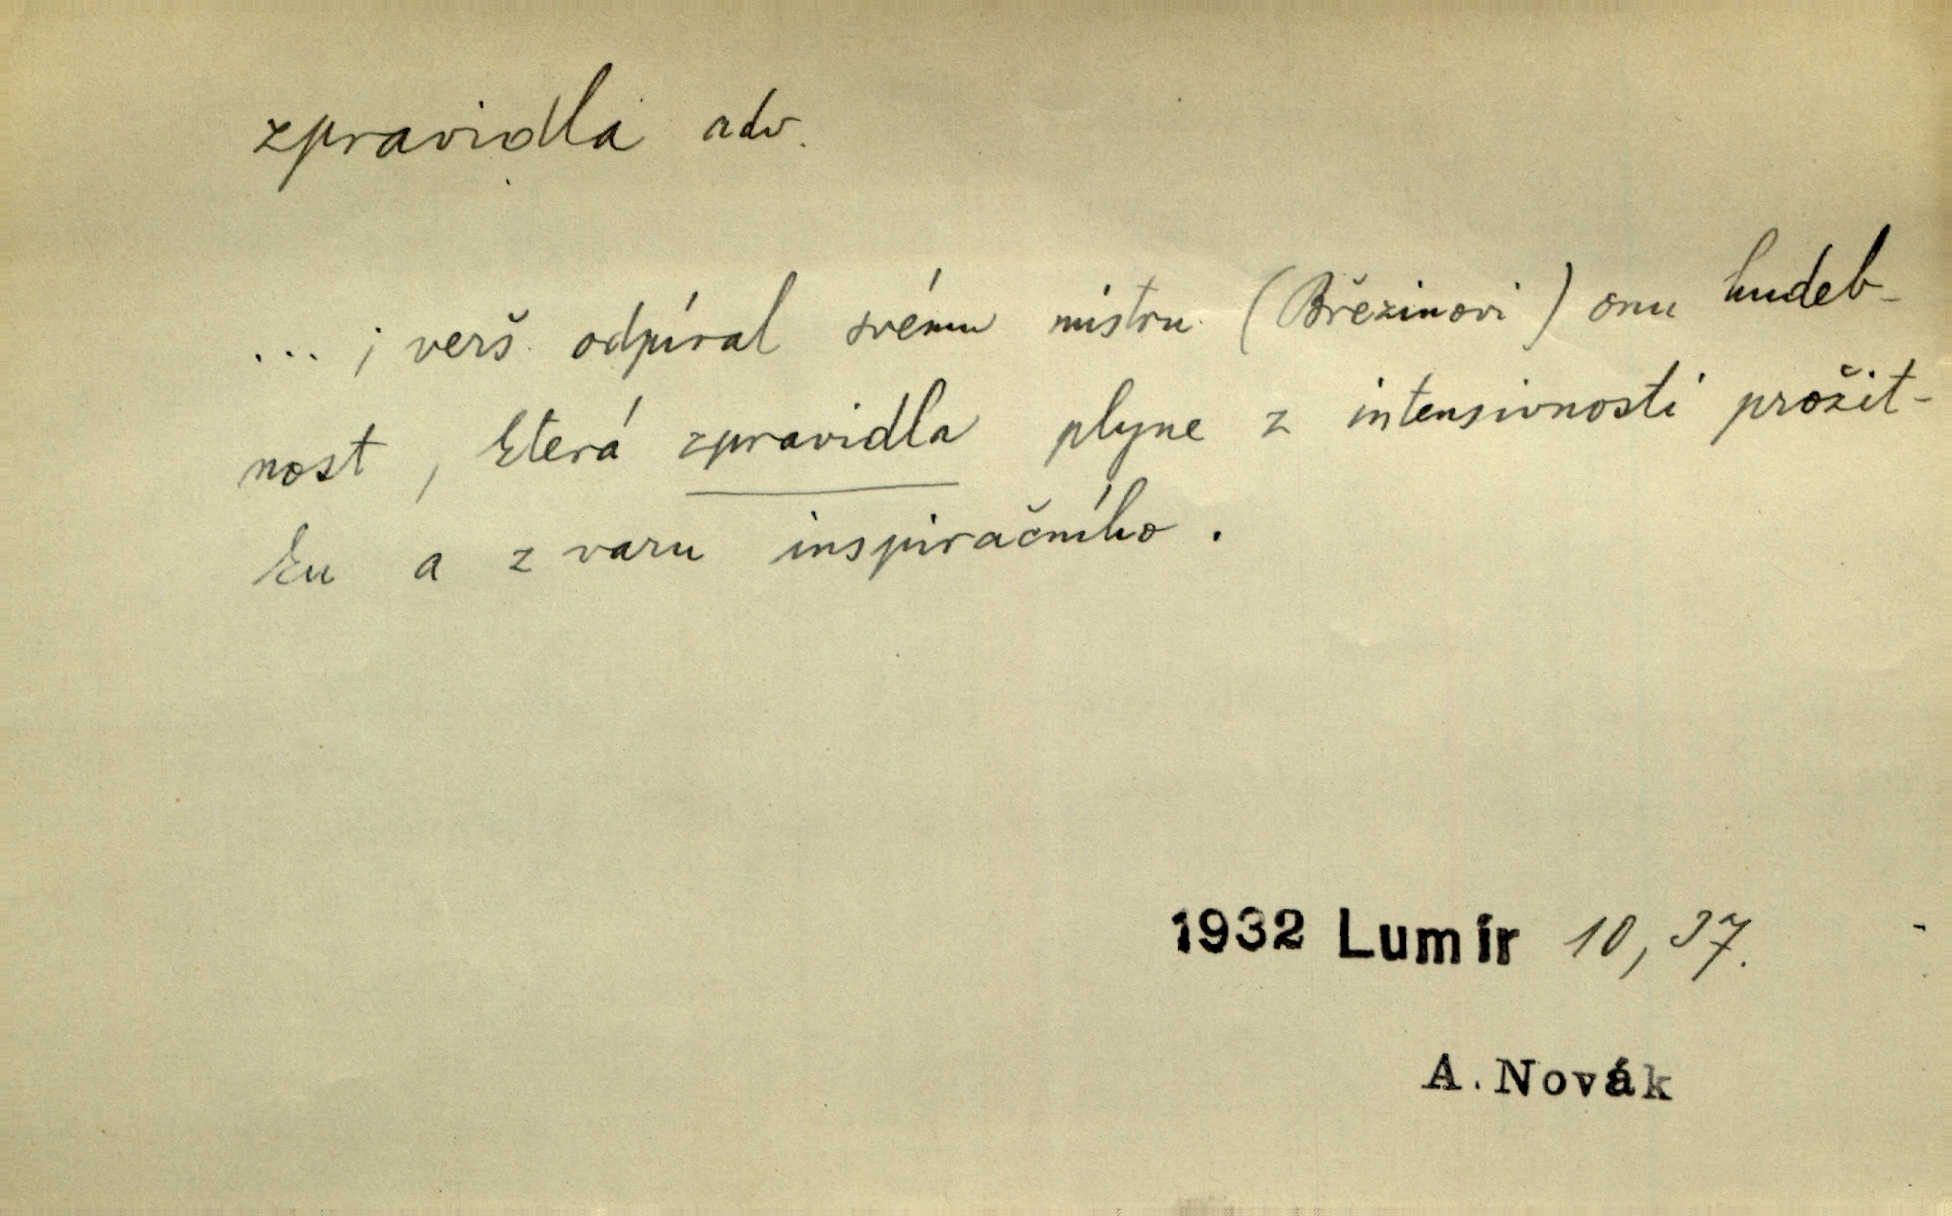 zpravidla adv.
... ; verš odpíral svému mistru (Březinovi) onu hudeb-
nost, která zpravidla plyne z intensivnosti prožit-
ku a z varu inspiračního.
1932 Lumír 10, 37.
A. Novák